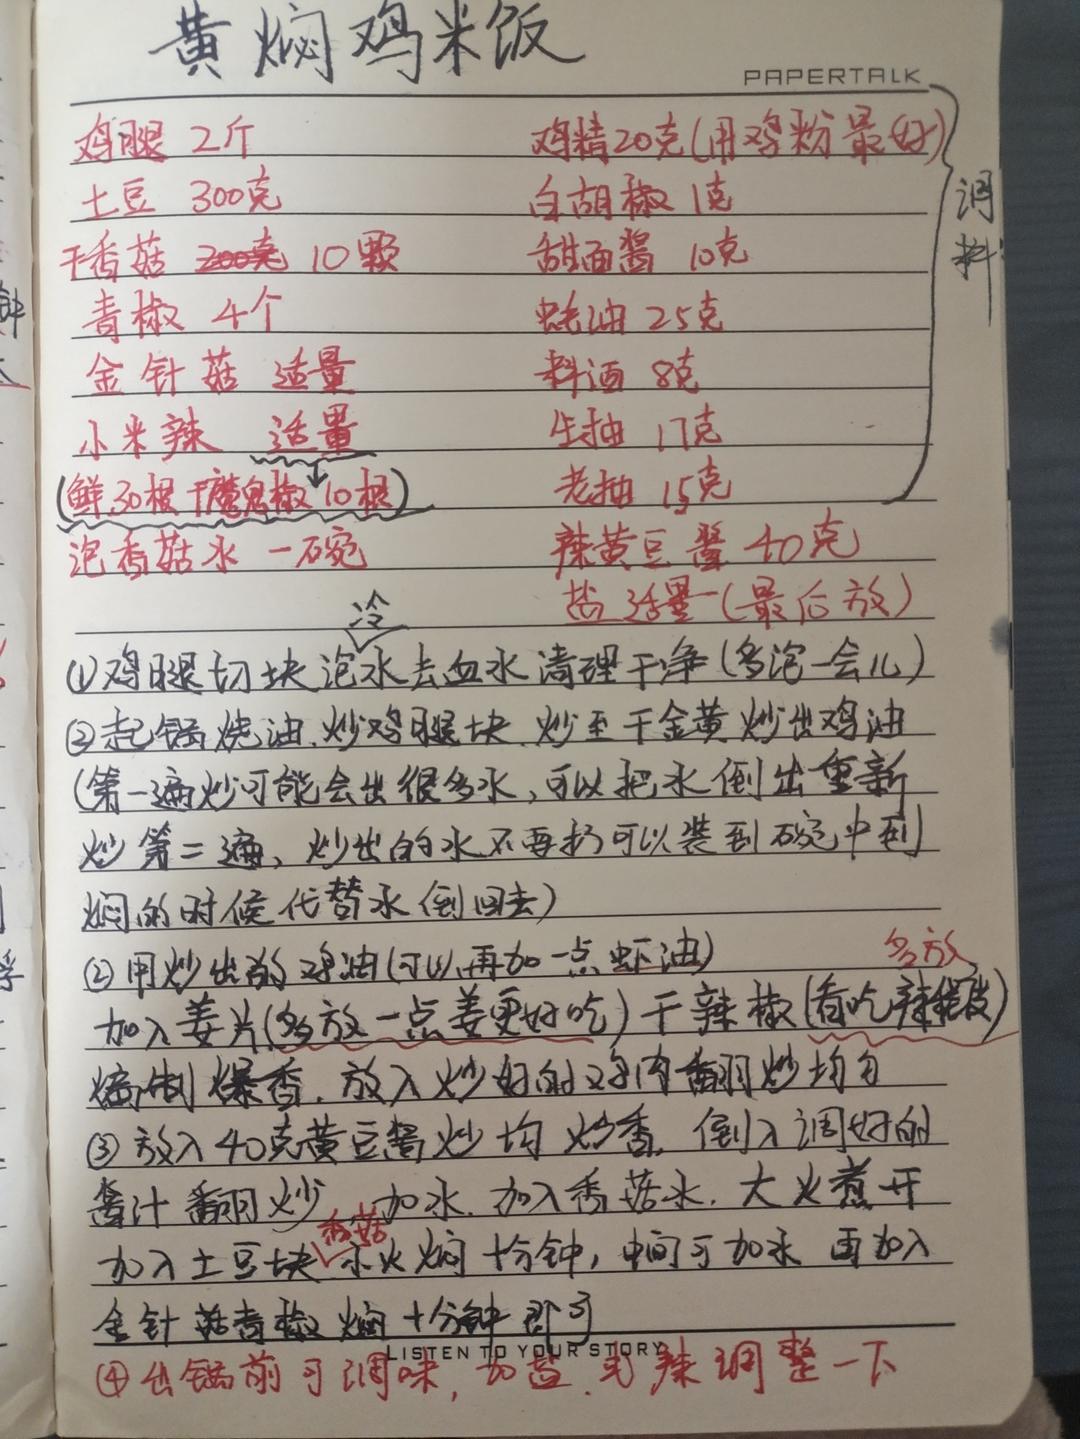 黄焖鸡米饭
PAPERTALK
鸡腿 2斤
土豆 300克
干香菇 200克 10颗
青椒 4个
金针菇 适量
小米辣 适量
(鲜30根 干魔鬼椒10根)
泡香菇水 一碗
鸡精20克(用鸡粉最好)
白胡椒 1克
甜面酱 10克
蚝油 25克
料酒 8克
生抽 17克
老抽 15克
调料:
辣黄豆酱 40克
盐适量(最后放)
①鸡腿切块泡冷水去血水清理干净(多泡一会儿)
②起锅烧油,炒鸡腿块,炒至干金黄炒出鸡油
(第一遍炒可能会出很多水,可以把水倒出重新
炒第二遍,炒出的水不要扔可以装到碗中到
焖的时候代替水倒回去)
②用炒出的鸡油(可以再加一点虾油)
多放
加入姜片(多放一点姜更好吃)干辣椒(看吃辣程度)
煸制爆香,放入炒好的鸡肉翻炒均匀
③放入40克黄豆酱炒均炒香,倒入调好的
酱汁翻炒 加水,加入香菇水,大火煮开
加入土豆块香菇小火焖十分钟,中间可加水 再加入
金针菇青椒焖十分钟即可
LISTEN TO YOUR STORY
④出锅前可调味,加盐,无辣调整一下
钟